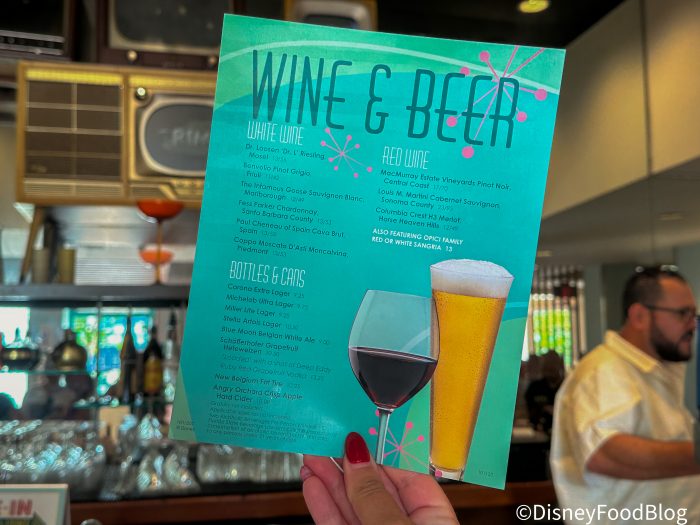 WINE & BEER
WHITE WINE
Dr. Loosen 'Dr. L' Riesling,
Mosel
Benvolio Pinot Grigio,
Friuli 11/42
The Infamous Goose Sauvignon Blanc,
Marlborough 12/49
Fess Parker Chardonnay,
Santa Barbara County
Paul Cheneau of Spain Cava Brut,
Spain
Coppo Moscato D'Asti Moncalvina,
Piedmont
BOTTLES & CANS
Corona Extra Lager
Michelob Ultra Lager
Miller Lite Lager
Stella Artois Lager
Blue Moon Belgian White Ale 9.00
Schöfferhofer Grapefruit
Hefeweizen 10.50
Ruby Red Grapefruit Vodka
New Belgium Fat Tire
Angry Orchard Crisp Apple
Hard Cider
RED WINE
MacMurray Estate Vineyards Pinot Noir,
Central Coast 17/70
Louis M. Martini Cabernet Sauvignon,
Sonoma County
Columbia Crest H3 Merlot,
Horse Heaven Hills 12/49
ALSO FEATURING OPICI FAMILY
RED OR WHITE SANGRIA 13
E-IN
©DisneyFoodBlog